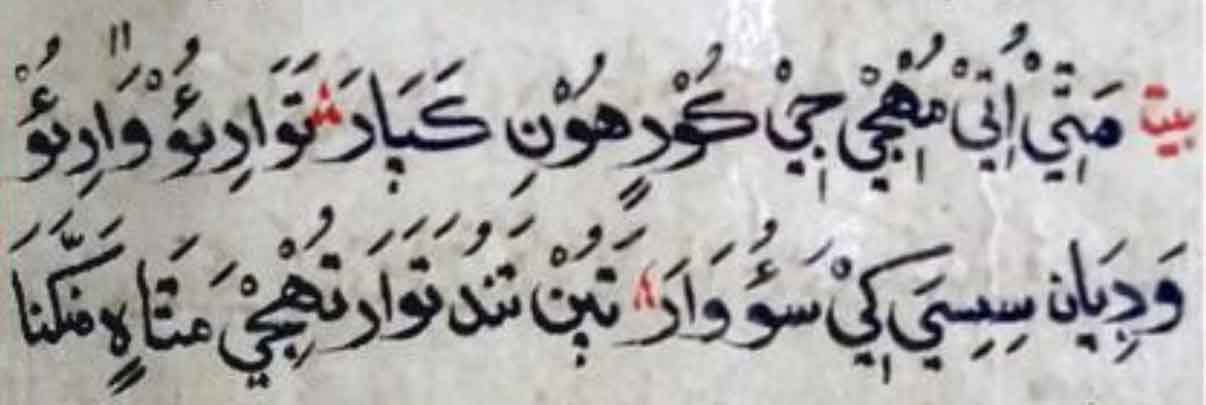 بيت مَتِيْ اُتِيْ مُهْجِيْ جِيْ كُوْرٍ هُوْنِ كَپَارَ تَوَادِئُوْ وَادِئُوْ
وَدِيَان سِسِيَ كِيْ سَئُو وَارَ تَپُنْ تَنُدَ تَوَارَ تُهِجِيْ مَتَاهٍ مَنَّكَنَا